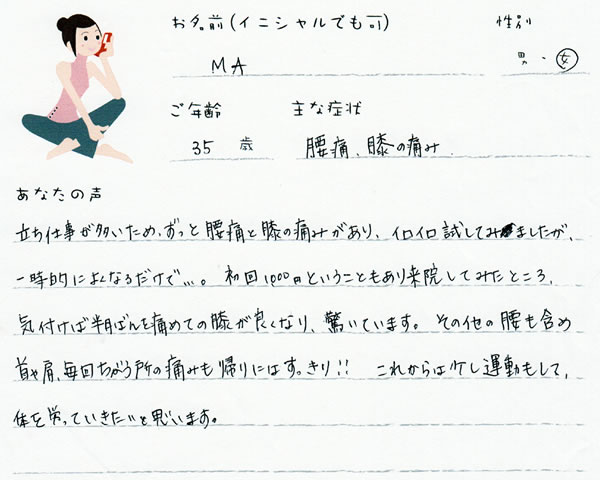 お名前(イニシャルでも可) 性別
MA 男・女
ご年齢 主な症状
35 歳 腰痛、膝の痛み
あなたの声
立ち仕事が多いため、ずっと腰痛と膝の痛みがあり、イロイロ試してみましたが、
一時的によくなるだけで…。初回1000円ということもあり来院してみたところ、
気付けば半月ばん を痛めての膝が良くなり、驚いています。その他の腰も含め
首や肩、毎回ちがう所の痛みも帰りにはすっきり!! これからは少し運動もして、
体を労っていきたいと思います。